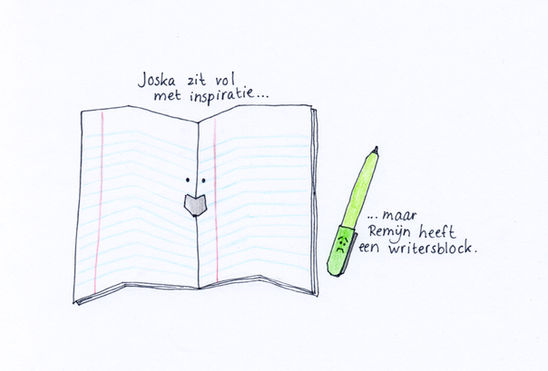 Joska zit vol
met inspiratie...
...maar
Remijn heeft
een writersblock.